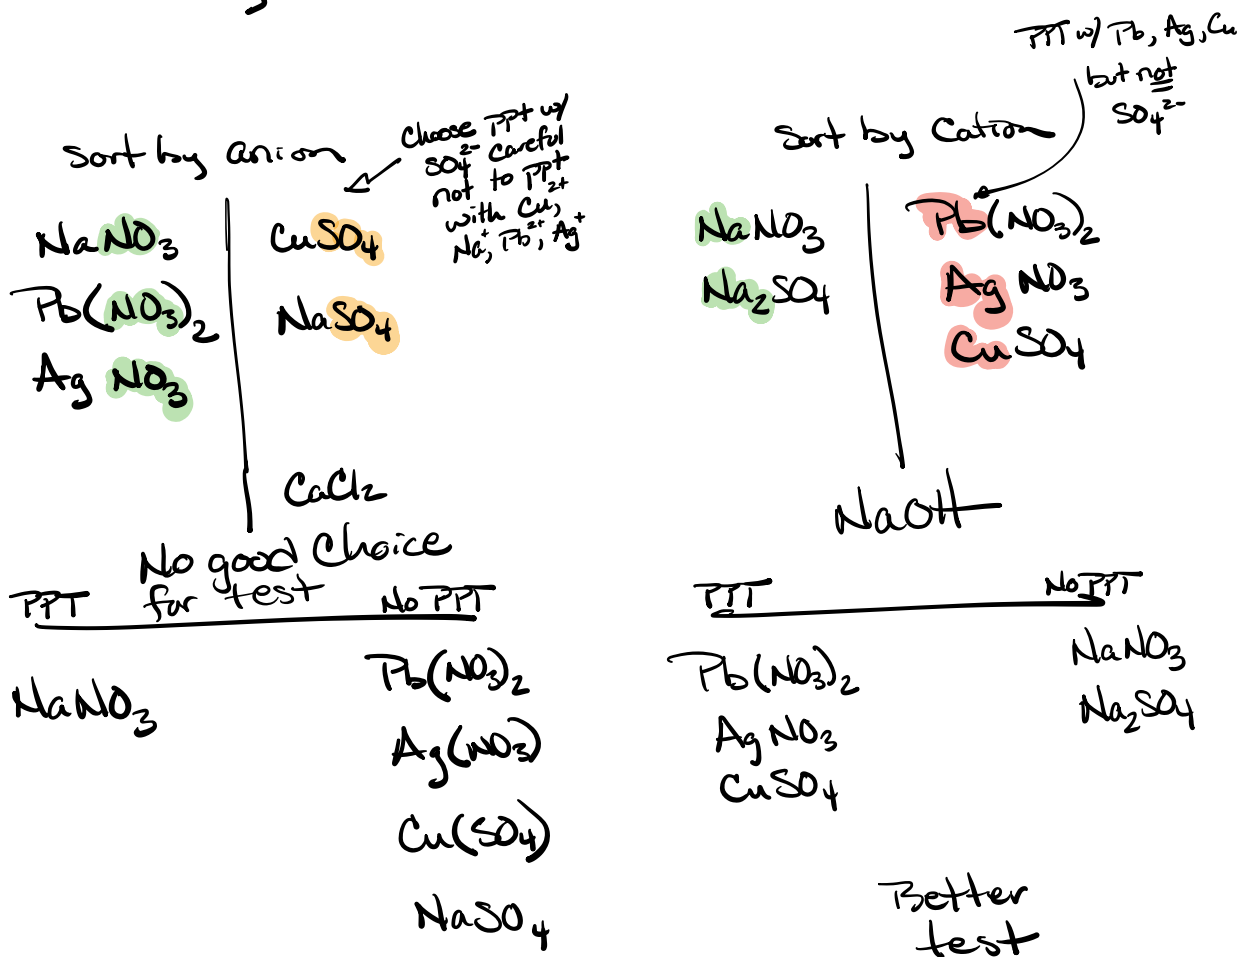 Sort by anion
Choose PPt w/
SO₄²⁻ careful
not to PPt
with Cu²⁺,
Na⁺, Pb²⁺, Ag⁺
NaNO₃
Pb(NO₃)₂
Ag NO₃
CuSO₄
NaSO₄
CaCl₂
No good choice
for test
PPT
No PPT
NaNO₃
Pb(NO₃)₂
Ag(NO₃)
Cu(SO₄)
NaSO₄
PPT w/ Pb, Ag, Cu
but not
SO₄²⁻
Sort by Cation
NaNO₃
Na₂SO₄
Pb(NO₃)₂
Ag NO₃
CuSO₄
NaOH
PPT
No PPT
Pb(NO₃)₂
Ag NO₃
CuSO₄
NaNO₃
Na₂SO₄
Better
test